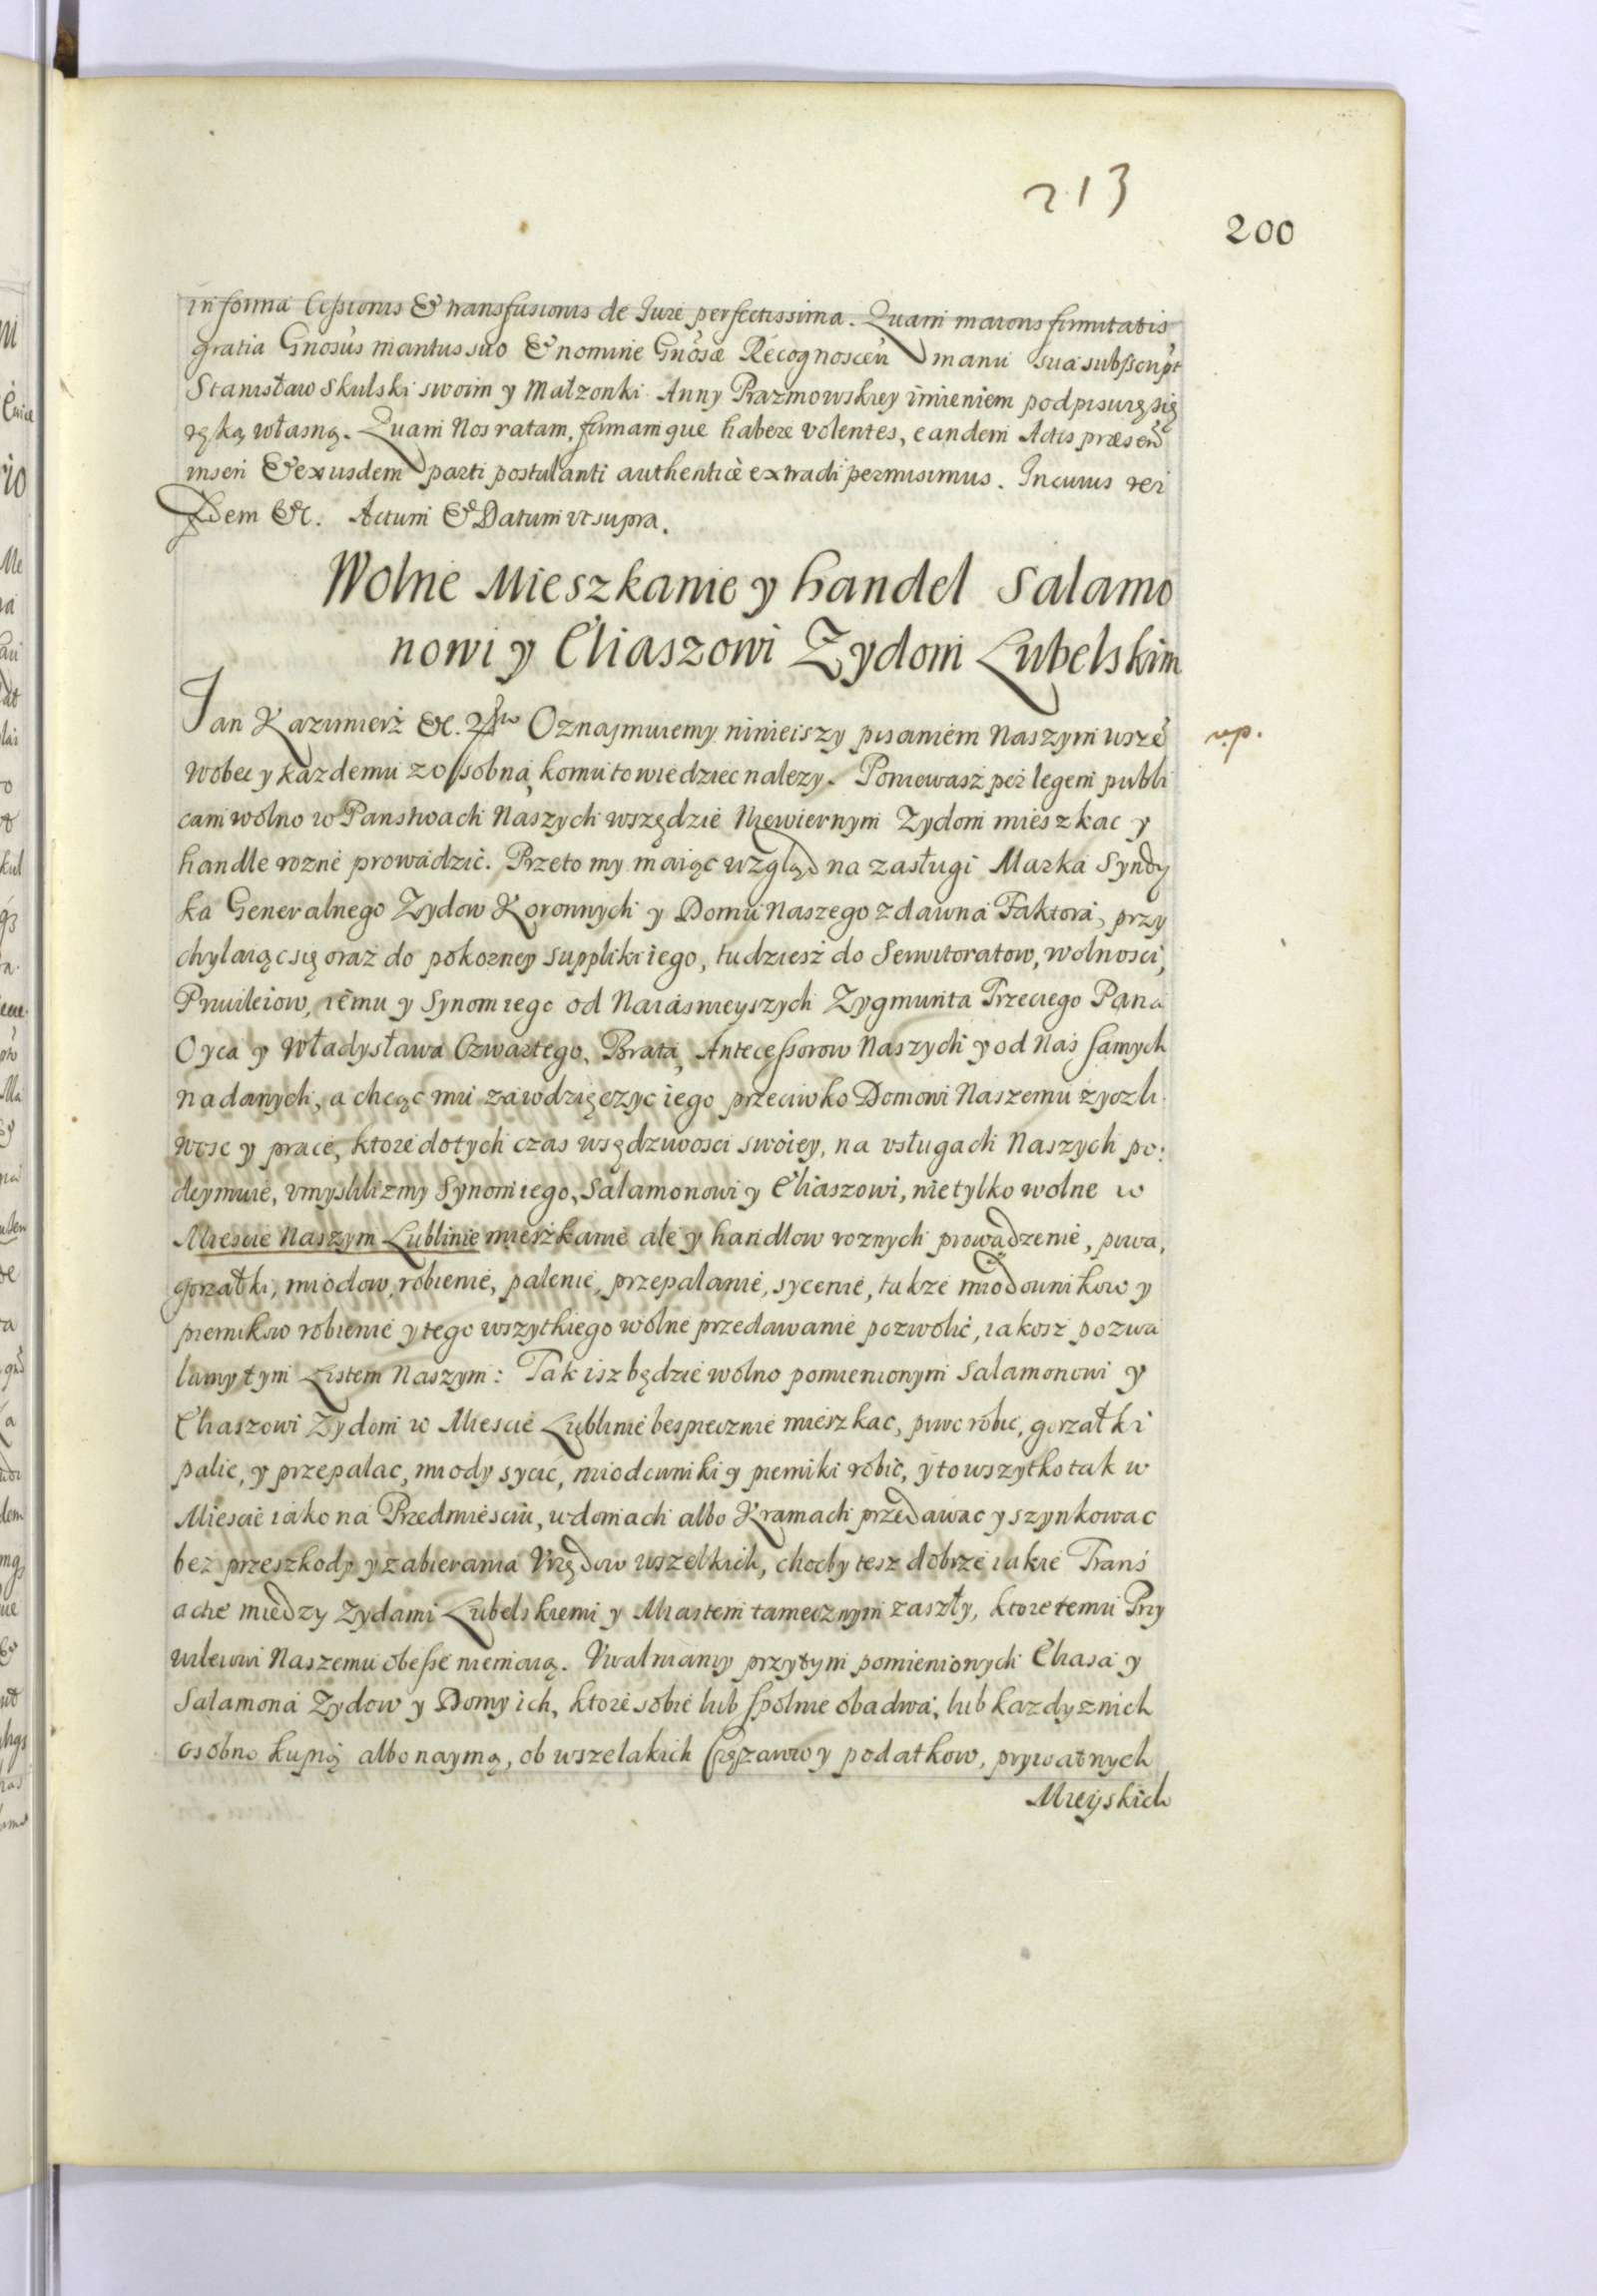 213
200
in forma Cessionis & transfusionis de Jure perfectissima. Quam maioris firmitatis
gratia Gnosus maritus suo & nomine Gnosæ Recognoscen manu sua subscript
Stanisław Skulski swoim y Małzonki Anny Prazmowskiey imieniem podpisuię się
ręką własną. Quam Nos ratam, firmamque habere volentes, eandem Actis præsen
inseri & ex iisdem parti postulanti authenticè extradi permisimus. In cuius rei
fidem &c. Actum & Datum vt supra.
Wolne Mieszkanie y handel Salamo
nowi y Eliaszowi Zydom Lubelskim
Jan Kazimierz &c. Oznajmuiemy ninieiszy pisaniem Naszym wsze
wobec y kazdemu zosobna, komu to wiedziec nalezy. Poniewasz per legem publi
cam wolno w Panstwach Naszych wszędzie Niewiernym Zydom mieszkac y
handle rozne prowadzic. Przeto my maiąc wzgląd na zasługi Marka Syndy
ka Generalnego Zydow Koronnych y Domu Naszego zdawna Faktora, przy
chylaiąc się oraz do pokorney suppliki iego, tudziesz do Serwitoratow, wolnosci,
Priuileiow, iemu y Synom iego od Naiasnieyszych Zygmunta Trzeciego Pana
Oyca y Władysława Czwartego, Brata, Antecessorow Naszych y od Nas samych
nadanych, a chcąc mu zawdzięczyc iego przeciwko Domowi Naszemu zyczli
wosc y prace, ktore dotych czas w sędziwosci swoiey, na vsługach Naszych po:
deymuie, vmyslilizmy Synom iego, Salamonowi y Eliaszowi, nie tylko wolne w
Miescie Naszym Lublinie mieszkanie ale y handlow roznych prowadzenie, piwa,
gorzałki, miodow, robienie, palenie, przepalanie, sycenie, takze miodownikow y
piernikow robienie y tego wszytkiego wolne przedawanie pozwolic, iakosz pozwa
lamy tym Listem Naszym: Tak isz będzie wolno pomienionym Salamonowi y
Eliaszowi Zydom w Miescie Lublinie bespiecznie mieszkac, piwo robic, gorzałki
palic, y przepalac, miody sycic, miodowniki y pierniki robic, y to wszytko tak w
Miescie iako na Przedmiesciu, w domach albo Kramach przedawac y szynkowac
bez przeszkody y zabierania Vrzędow wszelkich, chocby tesz dobrze iakie Trans
actie między Zydami Lubelskiemi y Miastem tamecznym zaszły, ktore temu Przy
wileiowi Naszemu obesse nie maią. Vwalniamy przytym pomienionych Eliasa y
Salamona Zydow y Domy ich, ktore sobie lub spolnie obadwa, lub kazdy z nich
osobno kupią albo naymą, ob wszelakich Cięzarow y podatkow, prywatnych
Mieyskich